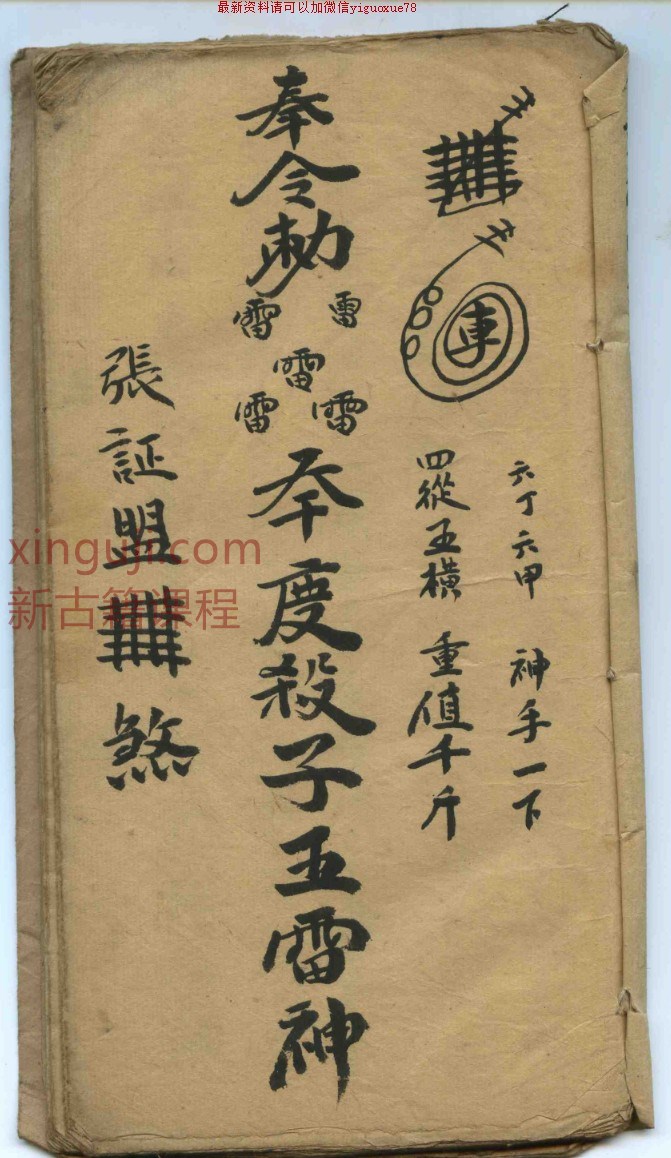 最新资料请可以加微信yiguoxue78
六丁六甲 神手一下
車
四從五横 重值千斤
奉令勅
雷 雷
雷
雷 雷
本度殺子五雷神
張証盟
煞
xinguji.com
新古籍课程